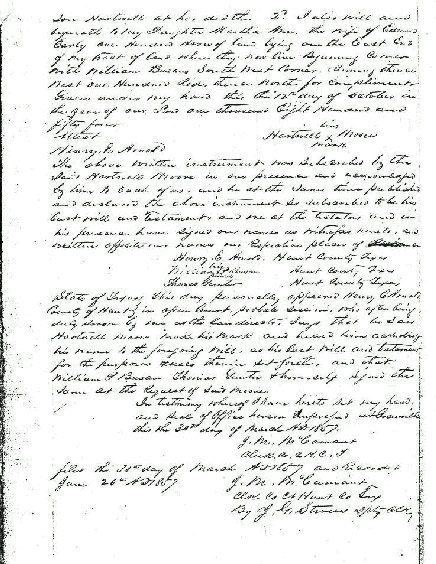 Son Hartwell at his death 2d I also will and
bequeath to my Daughter Martha Ann, the wife of
Early one hundred acres of land lying on the East End
of my tract of land where they now live Beginning Corner
with William South West Corner, Running thence
West one Hundred Rods thence North for Compliment
Given under my hand this the 12th day of October in
the year of our Lord one thousand Eight Hundred and
fifty four
his
Attest Hartwell X Moore
mark
Henry E. Arnold
The above written instrument was subscribed by the
said Hartwell Moore in our presence and acknowledged
by him to each of us, and he at the same time published
and declared the above instrument so subscribed to be his
last will and testament, and we at the testators and in
his presence have signed our names as witnesses hereto, and
written opposite our names our respective places of
Henry E. Arnold Hunt County Texas
his
William Hunt County Texas
Thomas Hunter Hunt County Texas
State of Texas This day personally appeared Henry E. Arnold
County of Hunt in open Court, Probate Session, who after being
duly sworn by me as the law directs Says that he saw
Hartwell Moore make his mark and heard him acknowledge
his name to the foregoing Will, as his last Will and testament
for the purposes therein set forth, and that
William Thomas Hunter & himself signed the
same at the request of said Moore
In testimony whereof I have hereto set my hand
and seal of office hereon Impressed at Greenville
this the 30th day of March AD 1857.
J. M. McCamant
Clerk, C. C. H. C. T
filed the day of March AD 1857 and Recorded
June 26th AD 1857 J. M. McCamant
Clk. Co Ct Hunt Co Tex
By J. G. Stevens Dpty Clk